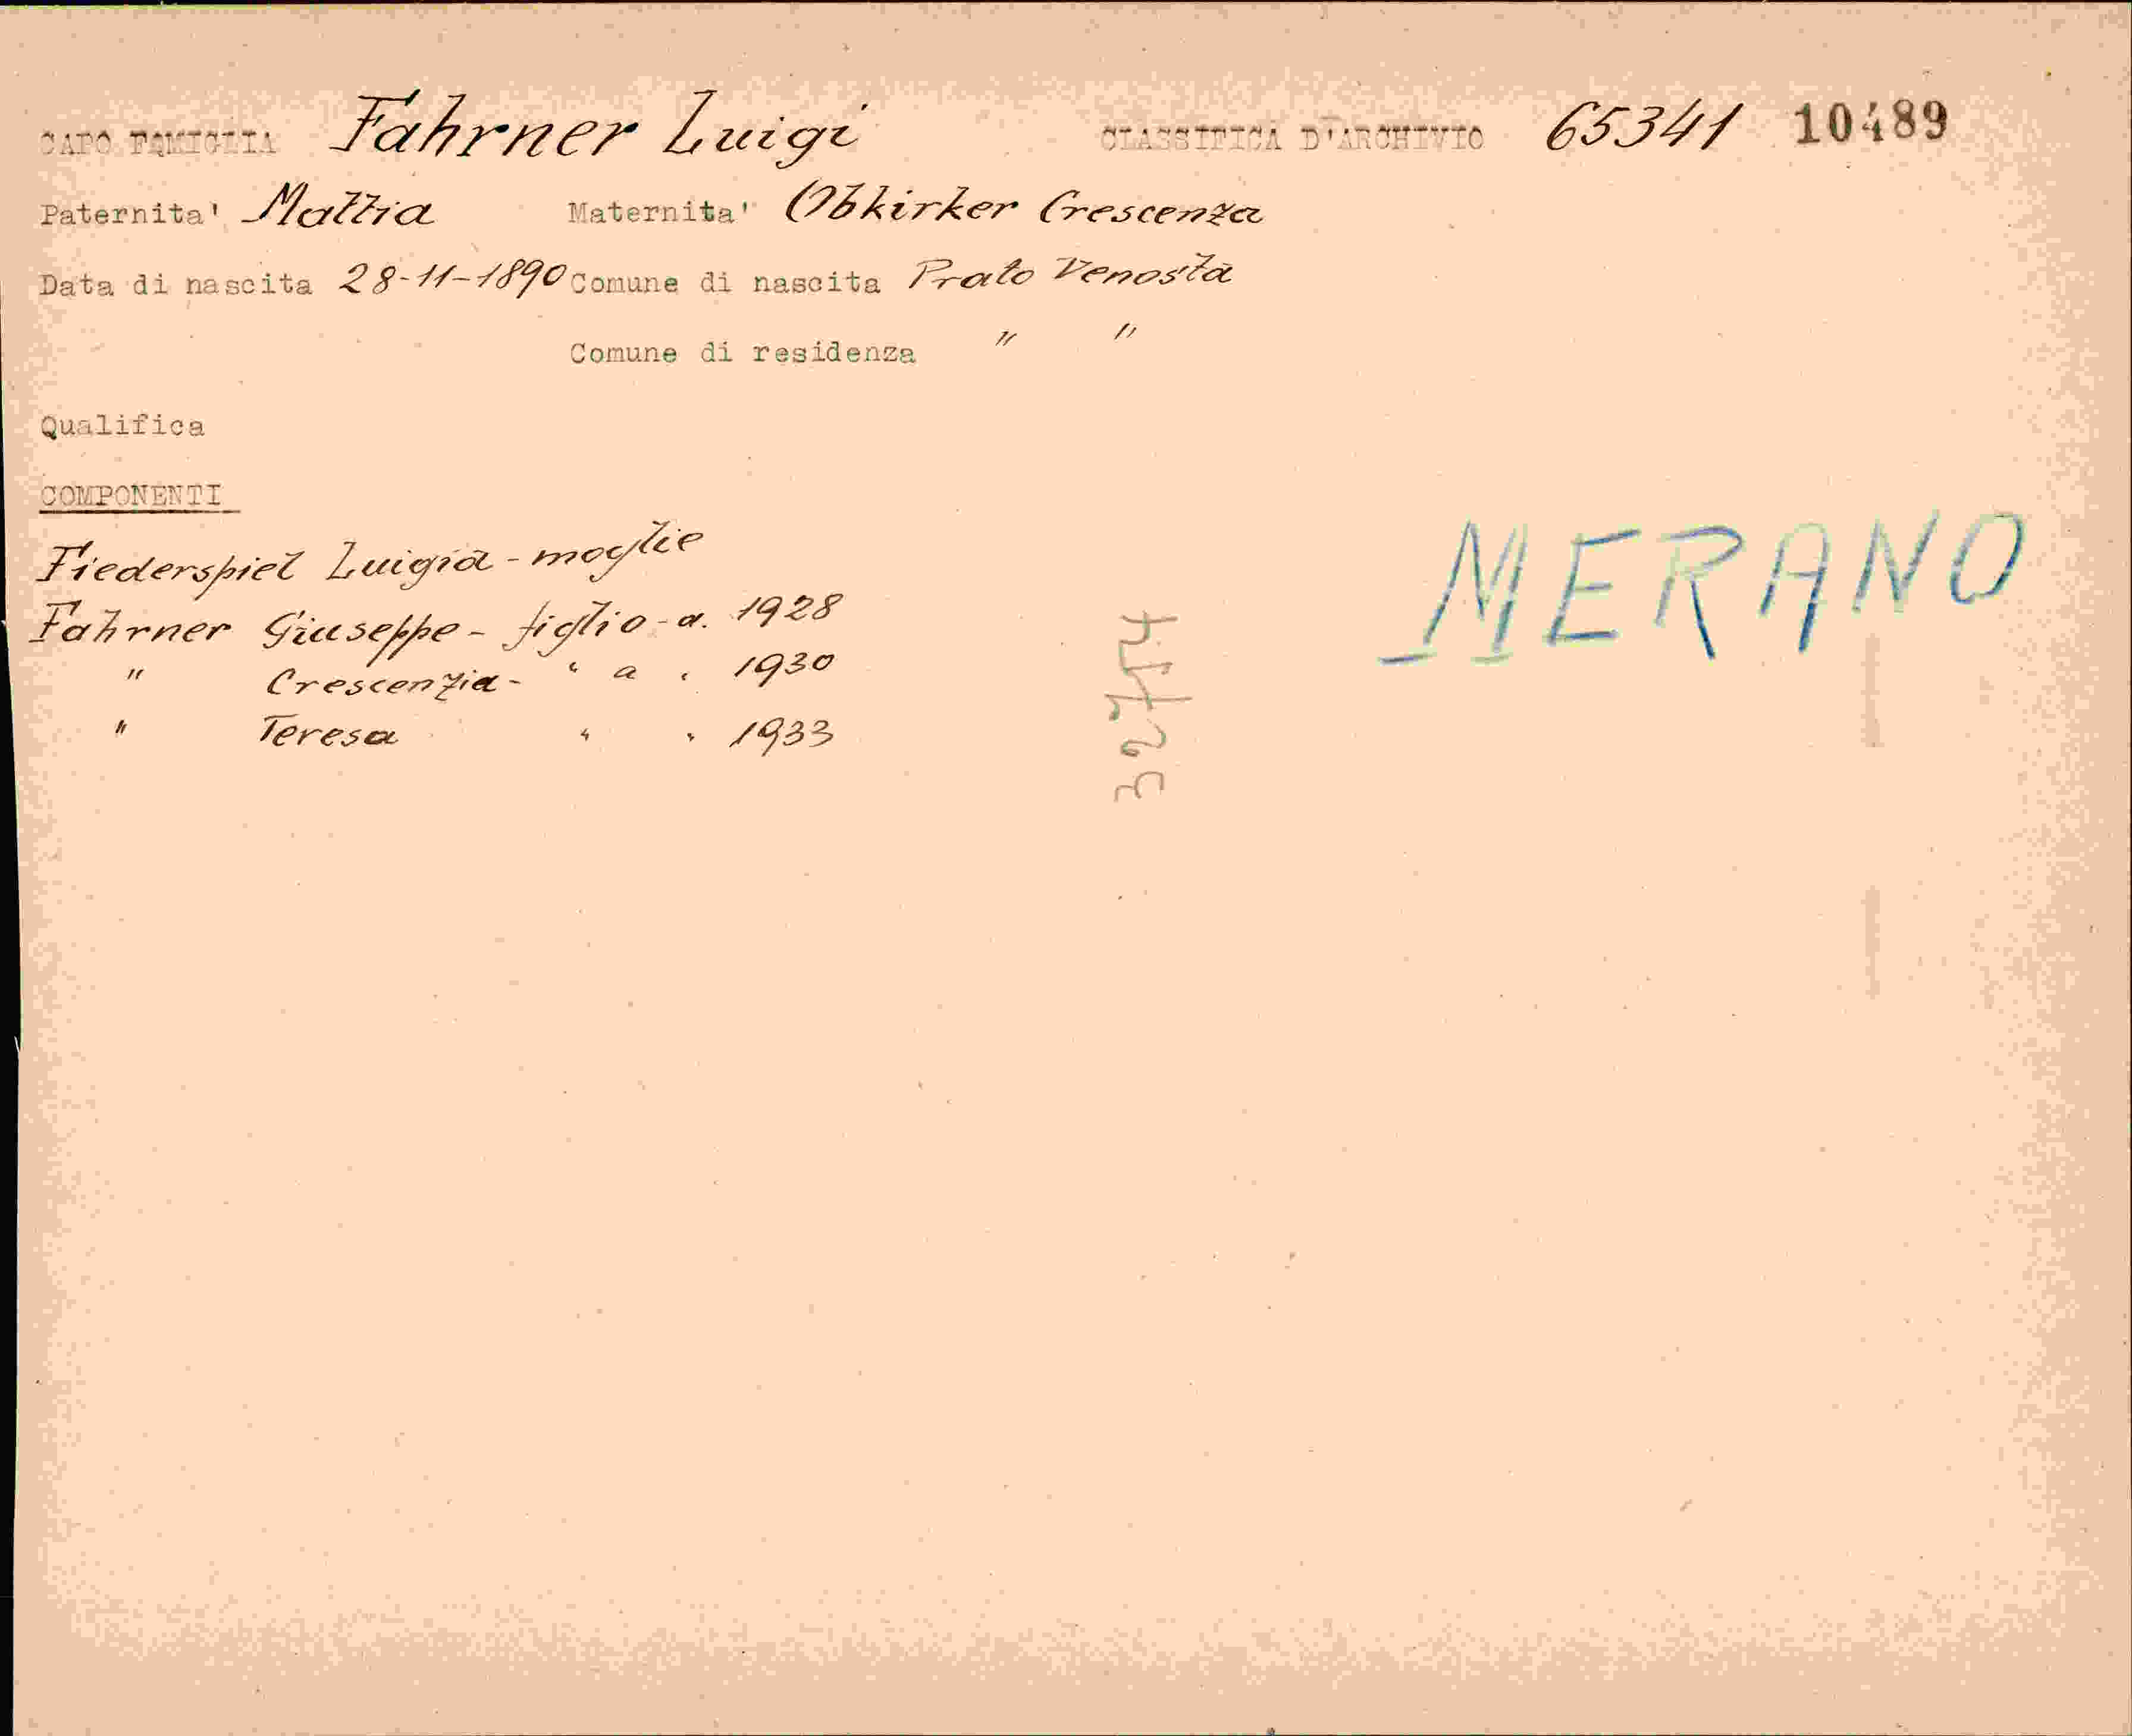 CAPO FAMIGLIA Fahrner Luigi CLASSIFICA D'ARCHIVIO 65341 10489
Paternita' Mattia Maternita' Obkirker Crescenza
Data di nascita 28-11-1890 Comune di nascita Prato Venosta
Comune di residenza " "
Qualifica
COMPONENTI
Fiederspiel Luigia - moglie
Fahrner Giuseppe - figlio - a. 1928
" Crescenzia - " a " 1930
" Teresa " " 1933
32754
MERANO